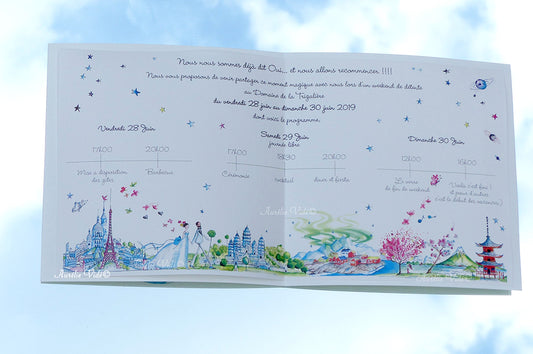 Nous nous sommes déjà dit Oui... et nous allons recommencer !!!!
Nous vous proposons de venir partager ce moment magique avec nous lors d'un weekend de détente
au Domaine de la Frigalière
du vendredi 28 juin au dimanche 30 juin 2019
dont voici le programme.
Vendredi 28 Juin
17h00
Mise à disposition
des gîtes
20h00
Barbecue
Samedi 29 Juin
journée libre
17h00
Cérémonie
18h30
cocktail
20h00
diner et soirée
Dimanche 30 Juin
12h00
Le verre
de fin de weekend
16h00
Voilà c'est fini !
et pour d'autres
c'est le début des vacances !
Aurélie Vidé©
Aurélie Vidé©
Aurélie Vidé©